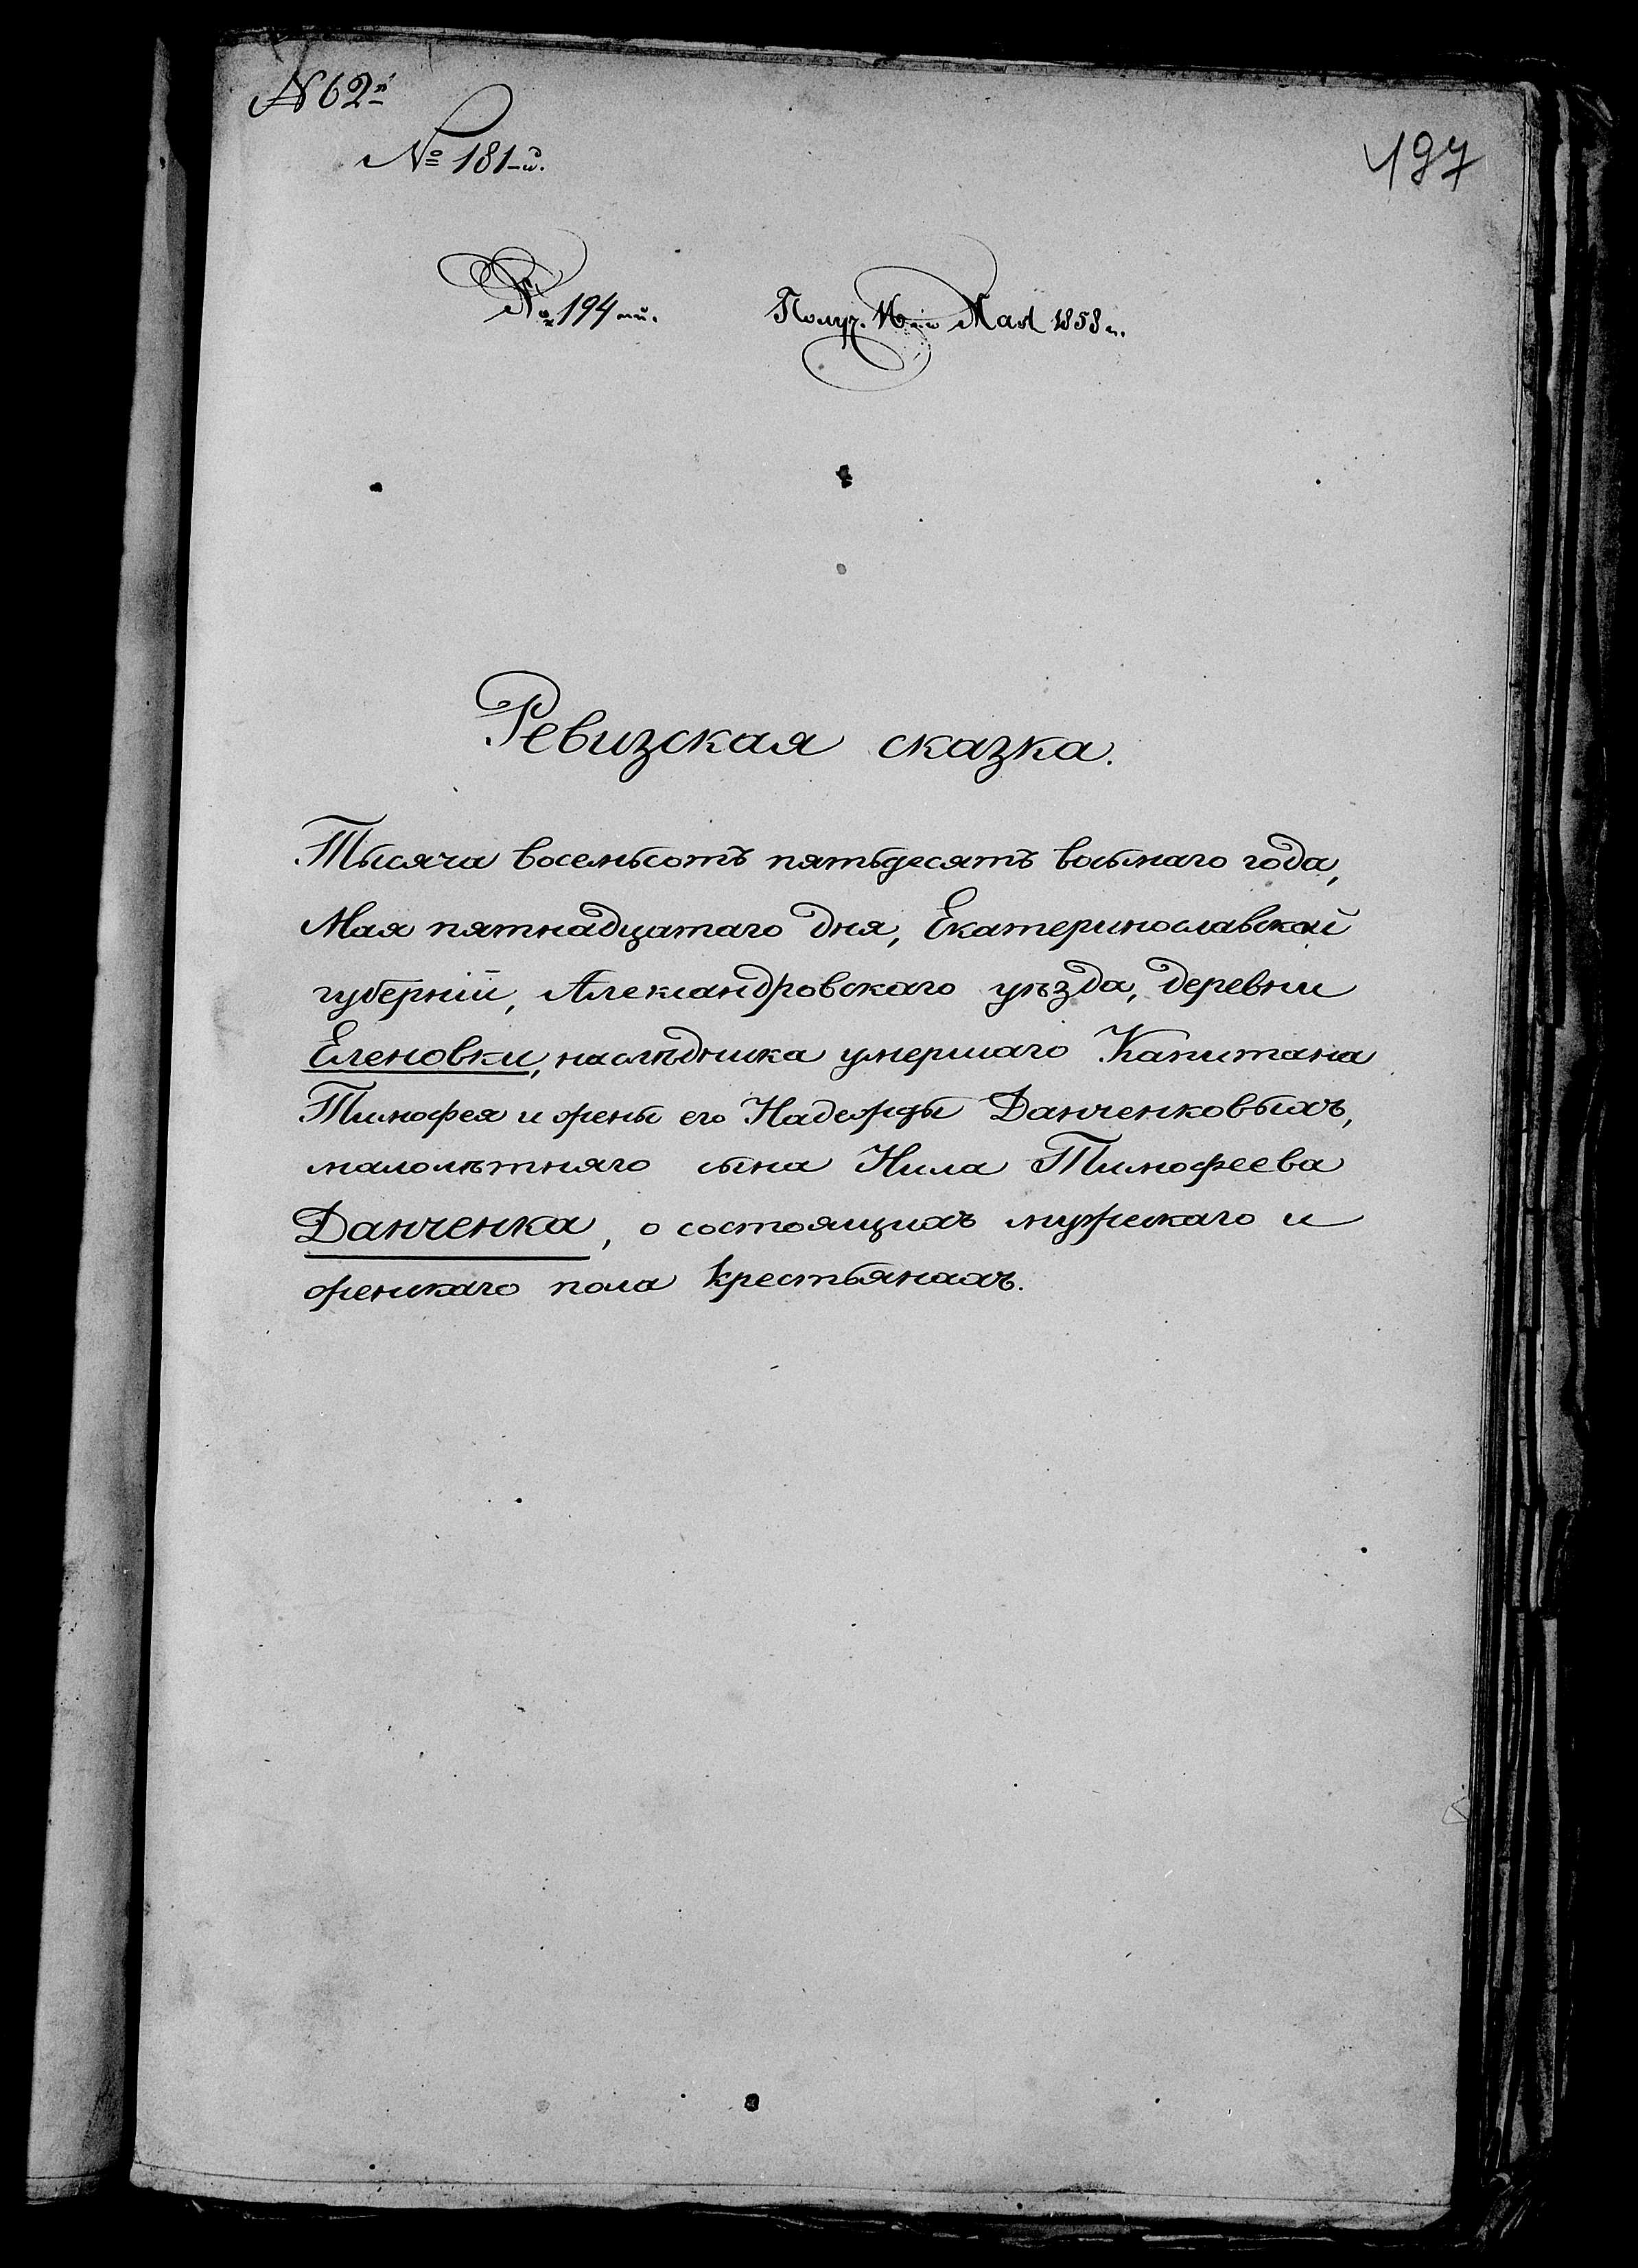 N 62й
№ 181-й.
197
№ 194-й. Получ. 16го Мая 1858 г.
Ревизская сказка.
Тысяча восемьсотъ пятьдесятъ восьмаго года,
Мая пятнадцатаго дня, Екатеринославской
губерніи, Александровскаго уѣзда, деревни
Еленовки, наслѣдника умершаго Капитана
Тимофея и жены его Надежды Данченковыхъ,
малолѣтняго сына Нила Тимофеева
Данченка, о состоящихъ мужескаго и
женскаго пола крестьянахъ.